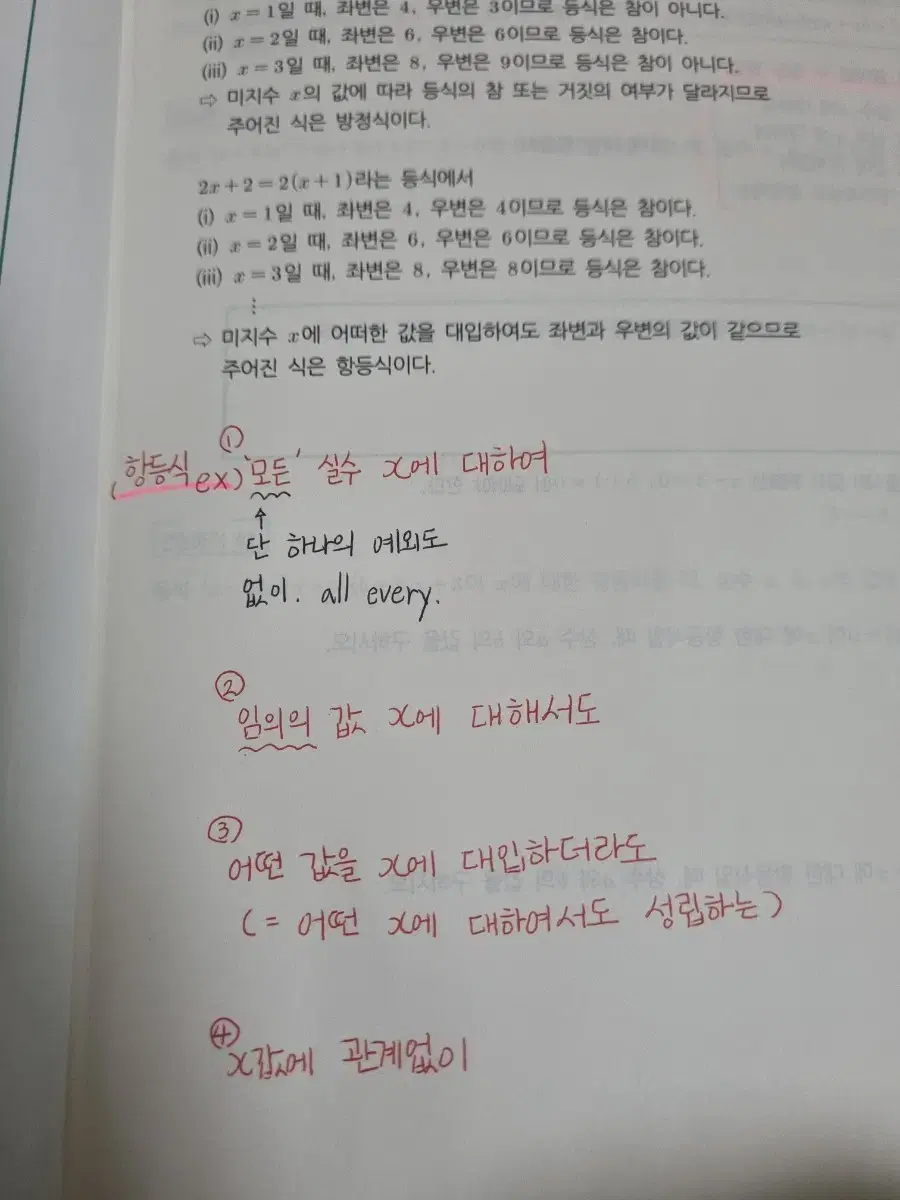 (i) x=1일 때, 좌변은 4, 우변은 3이므로 등식은 참이 아니다.
(ii) x=2일 때, 좌변은 6, 우변은 6이므로 등식은 참이다.
(iii) x=3일 때, 좌변은 8, 우변은 9이므로 등식은 참이 아니다.
⇨ 미지수 x의 값에 따라 등식의 참 또는 거짓의 여부가 달라지므로
주어진 식은 방정식이다.
2x+2=2(x+1)라는 등식에서
(i) x=1일 때, 좌변은 4, 우변은 4이므로 등식은 참이다.
(ii) x=2일 때, 좌변은 6, 우변은 6이므로 등식은 참이다.
(iii) x=3일 때, 좌변은 8, 우변은 8이므로 등식은 참이다.
⋮
⇨ 미지수 x에 어떠한 값을 대입하여도 좌변과 우변의 값이 같으므로
주어진 식은 항등식이다.
①
(항등식 ex) '모든' 실수 x에 대하여
↑
단 하나의 예외도
없이. all every.
②
임의의 값 x에 대해서도
③
어떤 값을 x에 대입하더라도
(= 어떤 x에 대하여서도 성립하는)
④
x값에 관계없이